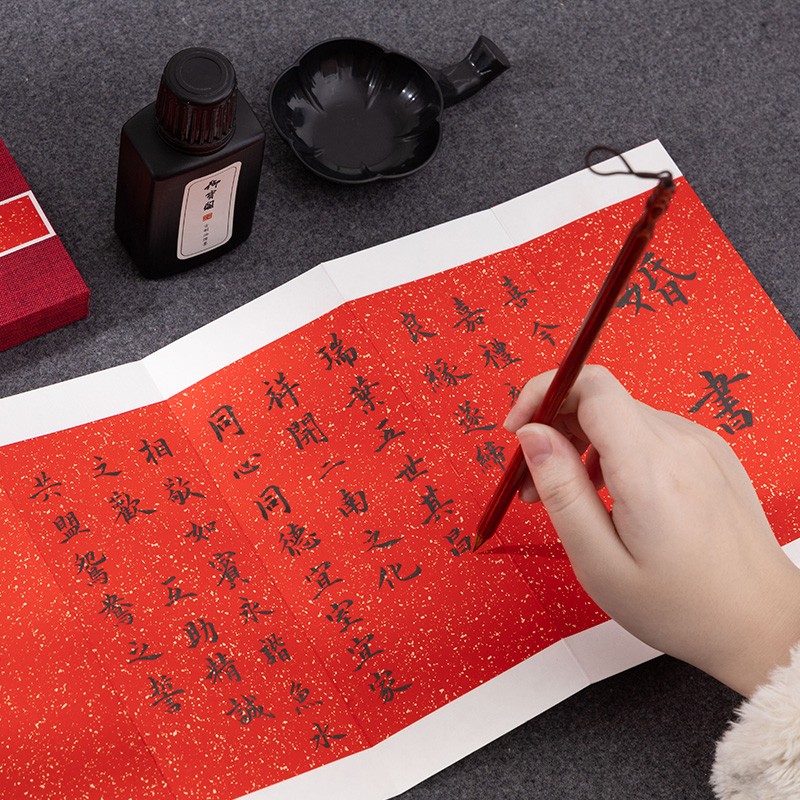 婚書
喜今
嘉禮
良緣遂締
瑞葉五世其昌
祥開二南之化
同心同德宜室宜家
相敬如賓永諧魚水
之歡 互助精誠
共盟鴛鴦之誓